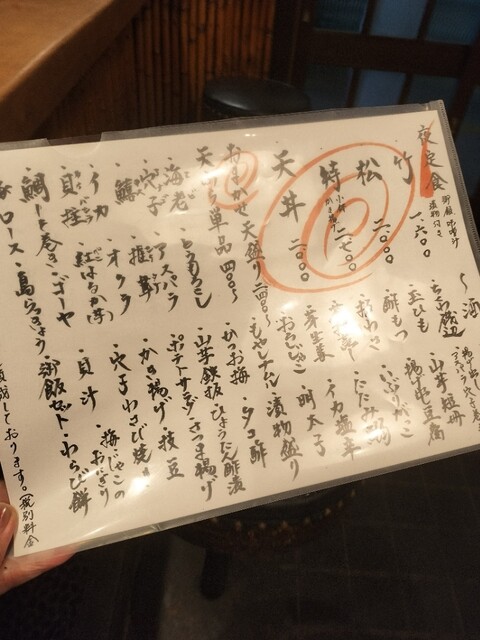 夜定食
御飯 味噌汁
漬物付き
竹 一六〇〇
松 二一〇〇
特
二七〇〇
天丼 二一〇〇
おまかせ天盛り 二四〇〇〜
天ぷら単品 四〇〇〜
・海老 ・とうもろこし
・穴子 ・アスパラ
・鱚 ・椎茸
・イカ ・オクラ
・貝柱 ・紅はるか(芋)
・鯛しそ巻き ・ゴーヤ
ロース ・島らっきょう
〜酒
・ちくわ磯辺
・玉ひも ・山芋短冊
・酢もつ ・揚げ出し豆腐
・板わさ ・いぶりがっこ
・たたみ鰯
・芽生姜 ・イカ塩辛
・おろしじゃこ ・明太子
・もやしナムル ・漬物盛り
・かつお梅 ・タコ酢
・山芋鉄板 ・ひょうたん酢漬
・ポテトサラダ ・さつま揚げ
・かき揚げ ・枝豆
・穴子わさび焼き
・貝汁 ・梅じゃこのおにぎり
・御飯セット ・わらび餅
しております。(税別料金